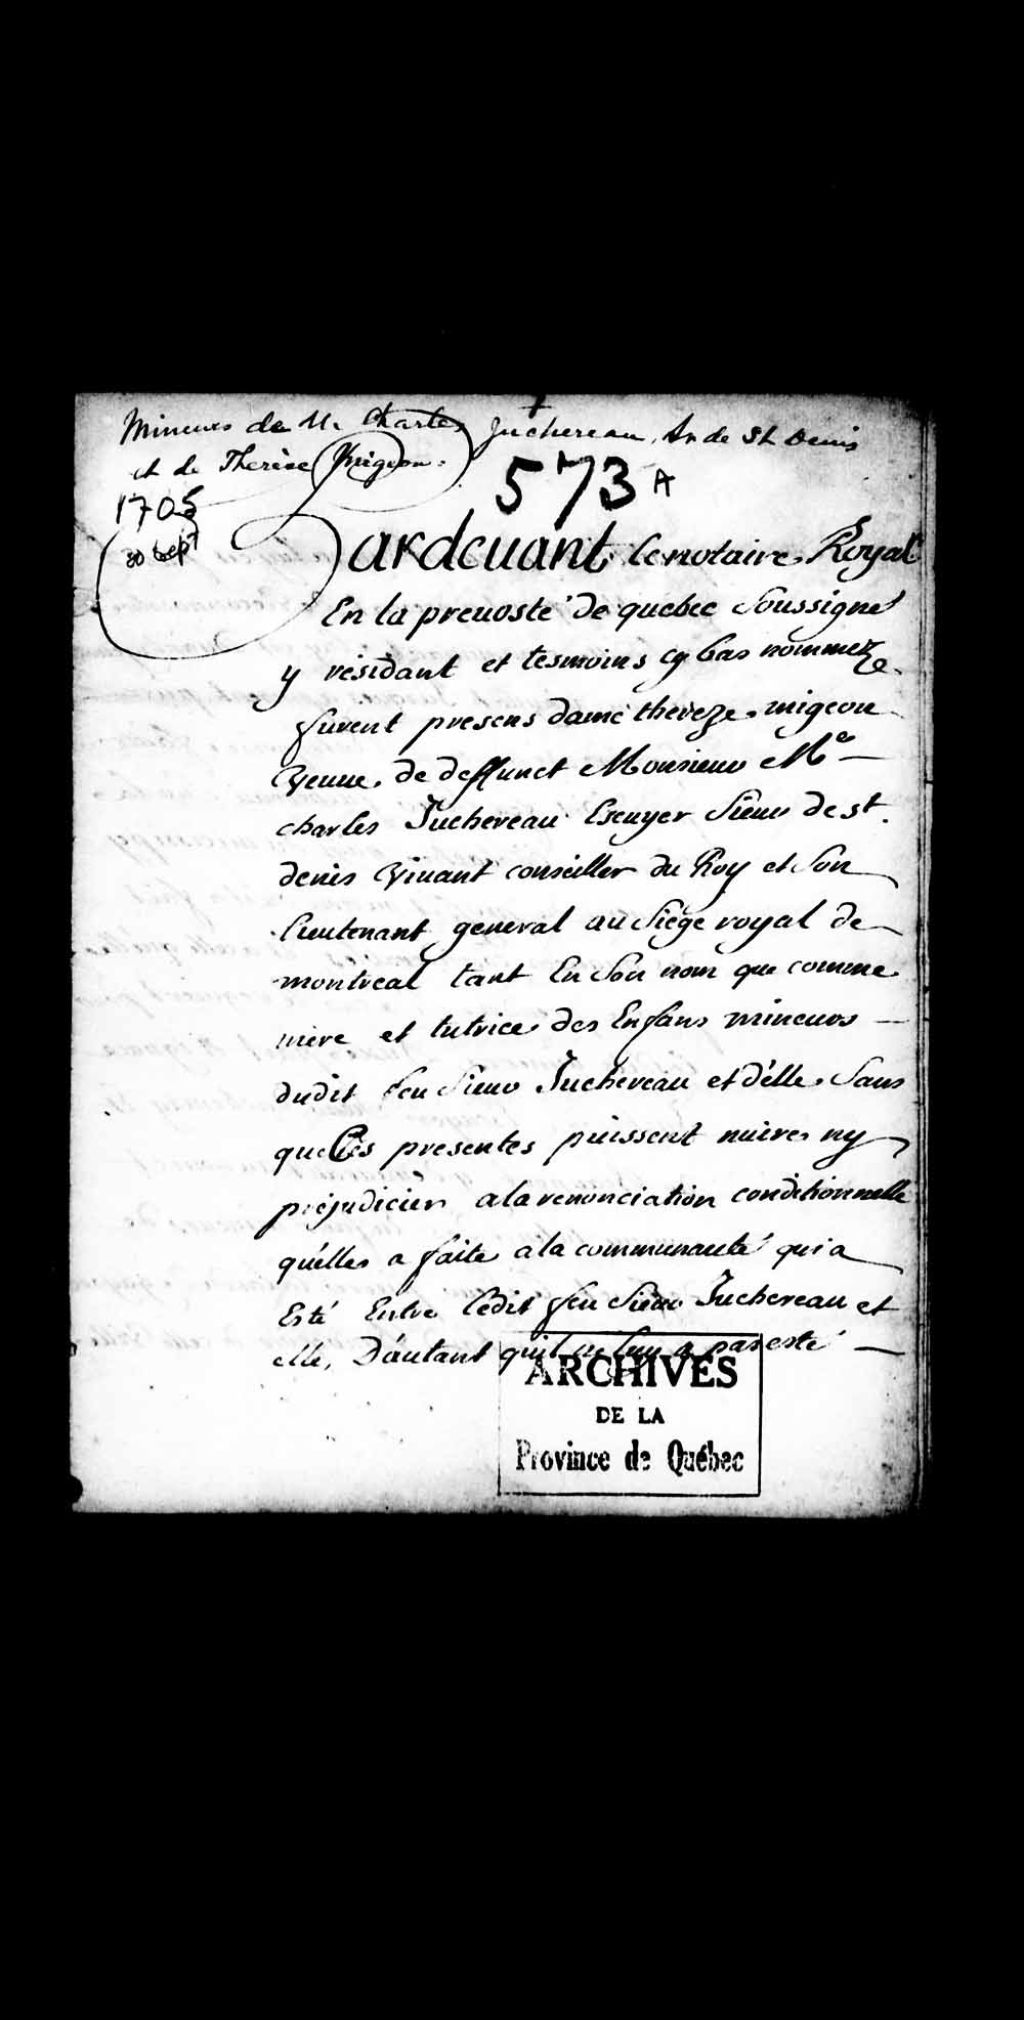 Mineurs de M. Charles Juchereau, Sr de St Denis
et de Therèse Migeon.
573 A
1705
30 Sept
Pardeuant le notaire Royal
En la preuosté de quebec Soussigné
y résidant et tesmoins cy bas nommez
furent presens dame thereze migeon
Veuue de deffunct Monsieur Me
charles Juchereau Escuyer Sieur de st.
denis Viuant conseiller du Roy et Son
lieutenant general au Siege royal de
montreal tant En Son nom que comme
mere et tutrice des Enfans mineurs
dudit feu Sieur Juchereau et d'elle, Sans
que Ces presentes puissent nuire ny
prejudicier a la renonciation conditionnelle
qu'elle a faite a la communauté qui a
Esté Entre ledit feu Sieur Juchereau et
elle, D'autant qu'il ne luy a pas esté
ARCHIVES
DE LA
Province de Québec